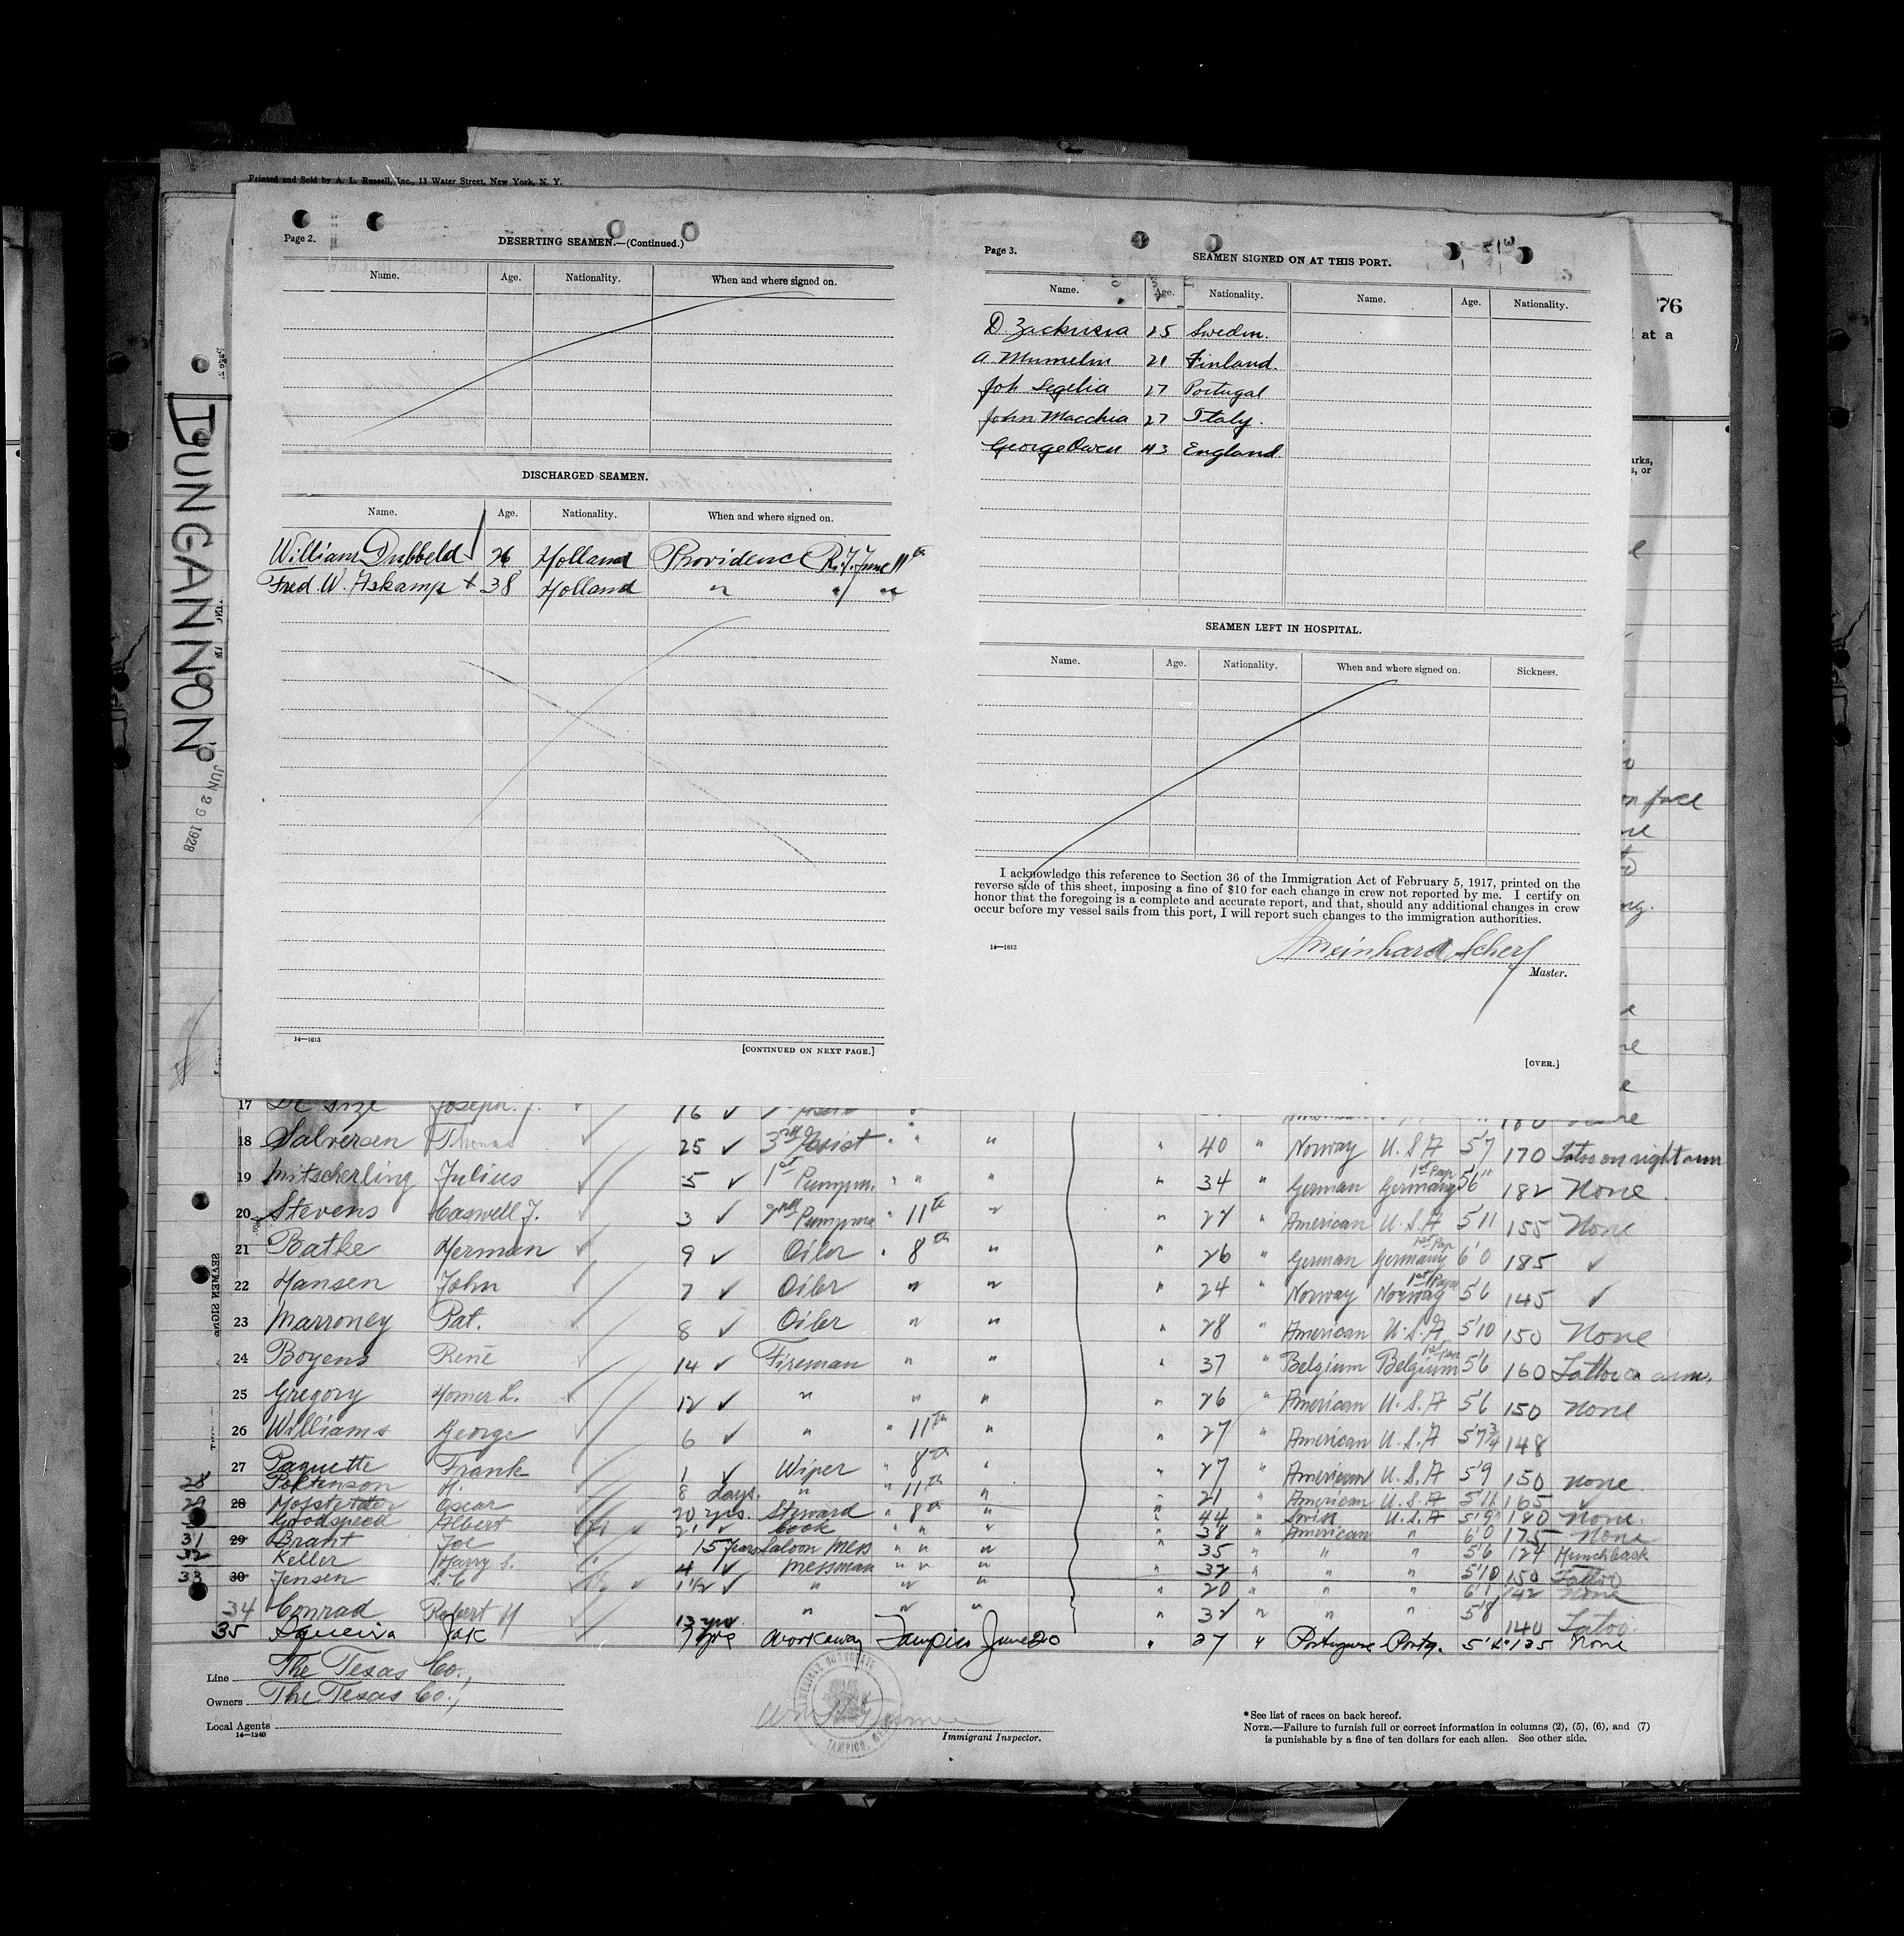 Printed and Sold by A. L. Russell, Inc., 13 Water Street, New York, N. Y.
DUNGANNON
JUN 29 1928
76
at a
Page 2.
DESERTING SEAMEN.—(Continued.)
Name. Age. Nationality. When and where signed on.
DISCHARGED SEAMEN.
Name. Age. Nationality. When and where signed on.
William Dubbeld 26 Holland Providence R.I. June 11th
Fred. W. Askamp + 38 Holland " " "
14—1613
[CONTINUED ON NEXT PAGE.]
Page 3.
SEAMEN SIGNED ON AT THIS PORT.
Name. Age. Nationality. Name. Age. Nationality.
D. 25 Sweden.
A. Mumelin 21 Finland.
Joh Segelia 27 Portugal
John Macchia 27 Italy.
George Owen 43 England.
SEAMEN LEFT IN HOSPITAL.
Name. Age. Nationality. When and where signed on. Sickness.
I acknowledge this reference to Section 36 of the Immigration Act of February 5, 1917, printed on the
reverse side of this sheet, imposing a fine of $10 for each change in crew not reported by me. I certify on
honor that the foregoing is a complete and accurate report, and that, should any additional changes in crew
occur before my vessel sails from this port, I will report such changes to the immigration authorities.
14—1613
Meinhard Scherf
Master.
[OVER.]
17 De Size Joseph. J. 16 ✓
18 Salversen Thomas ✓ 25 ✓ 3rd Assist " " " 40 " Norway U.S.A 5'7 170 Tatoo on right arm
19 Mitscherling Julius ✓ 5 ✓ 1st Pumpm. " " " " 34 " German Germany 1st Pap 5'6" 182 None.
20 Stevens Caswell J. ✓ 3 ✓ 2nd Pumpma " 11th " " 22 " American U.S.A 5'11 155 None
21 Batke Herman ✓ 9 ✓ Oiler " 8th " " 26 " German Germany 1st Pap 6'0 185 ✓
22 Hansen John ✓ 7 ✓ Oiler " " " 24 " Norway Norway 1st Paper 5'6 145 ✓
23 Marroney Pat. ✓ 8 ✓ Oiler " " " 28 " American U.S.A 5'10 150 None
24 Boyens René ✓ 14 ✓ Fireman " " 37 " Belgium Belgium 1st Pap 5'6 160 Tattoo on arm.
25 Gregory Homer L. ✓ 12 ✓ " " " " 26 " American U.S.A 5'6 150 None
26 Williams George ✓ 6 ✓ " " 11th " " 27 " American U.S.A 5'7¾ 148
27 Paquette Frank ✓ 1 ✓ Wiper " 8th " " 27 " American U.S.A 5'9 150 none
28 H. 8 days. " " 11th " " 21 " American U.S.A 5'11 165 ✓
29 28 Oscar 20 yrs. Steward " 8th " " 44 " Swiss U.S.A 5'9" 180 None.
Goodspeed Albert 21 ✓ Cook " " " " 38 " American " 6'0 175 None
31 29 Brant Joe 15 years Saloon Mess " " " 35 " " " 5'6 124 Hunchback
32 Keller Harry S. 4 ✓ Messman " " " 32 " " " 5'10 150 Tattoo
33 30 Jensen S. C 1½ ✓ " " " " 20 " " " 6'1 142 None
34 Conrad Robert H ✓ 13 yrs " " " " 32 " " " 5'8 140 Tatoo.
35 Jak 7 yrs Workaway Tampico June 20 " 27 " Portuguese Portg. 135 None
Line The Texas Co.,
Owners The Texas Co.,
Local Agents
14—1240
Immigrant Inspector.
*See list of races on back hereof.
NOTE.—Failure to furnish full or correct information in columns (2), (5), (6), and (7)
is punishable by a fine of ten dollars for each alien. See other side.